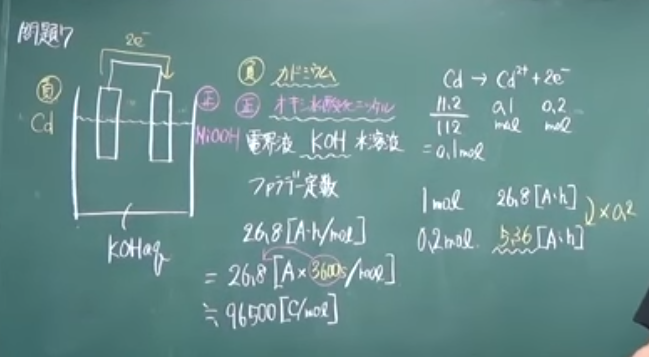 問題7
2e⁻
負
Cd
正
NiOOH
KOHaq
負 カドミウム
正 オキシ水酸化ニッケル
電界液 KOH 水溶液
ファラデー定数
26.8[A・h/mol]
= 26.8[A×3600s/mol]
≒ 96500[C/mol]
Cd → Cd²⁺ + 2e⁻
11.2/112 0.1mol 0.2mol
= 0.1mol
1mol 26.8[A・h]
×0.2
0.2mol. 5.36[A・h]